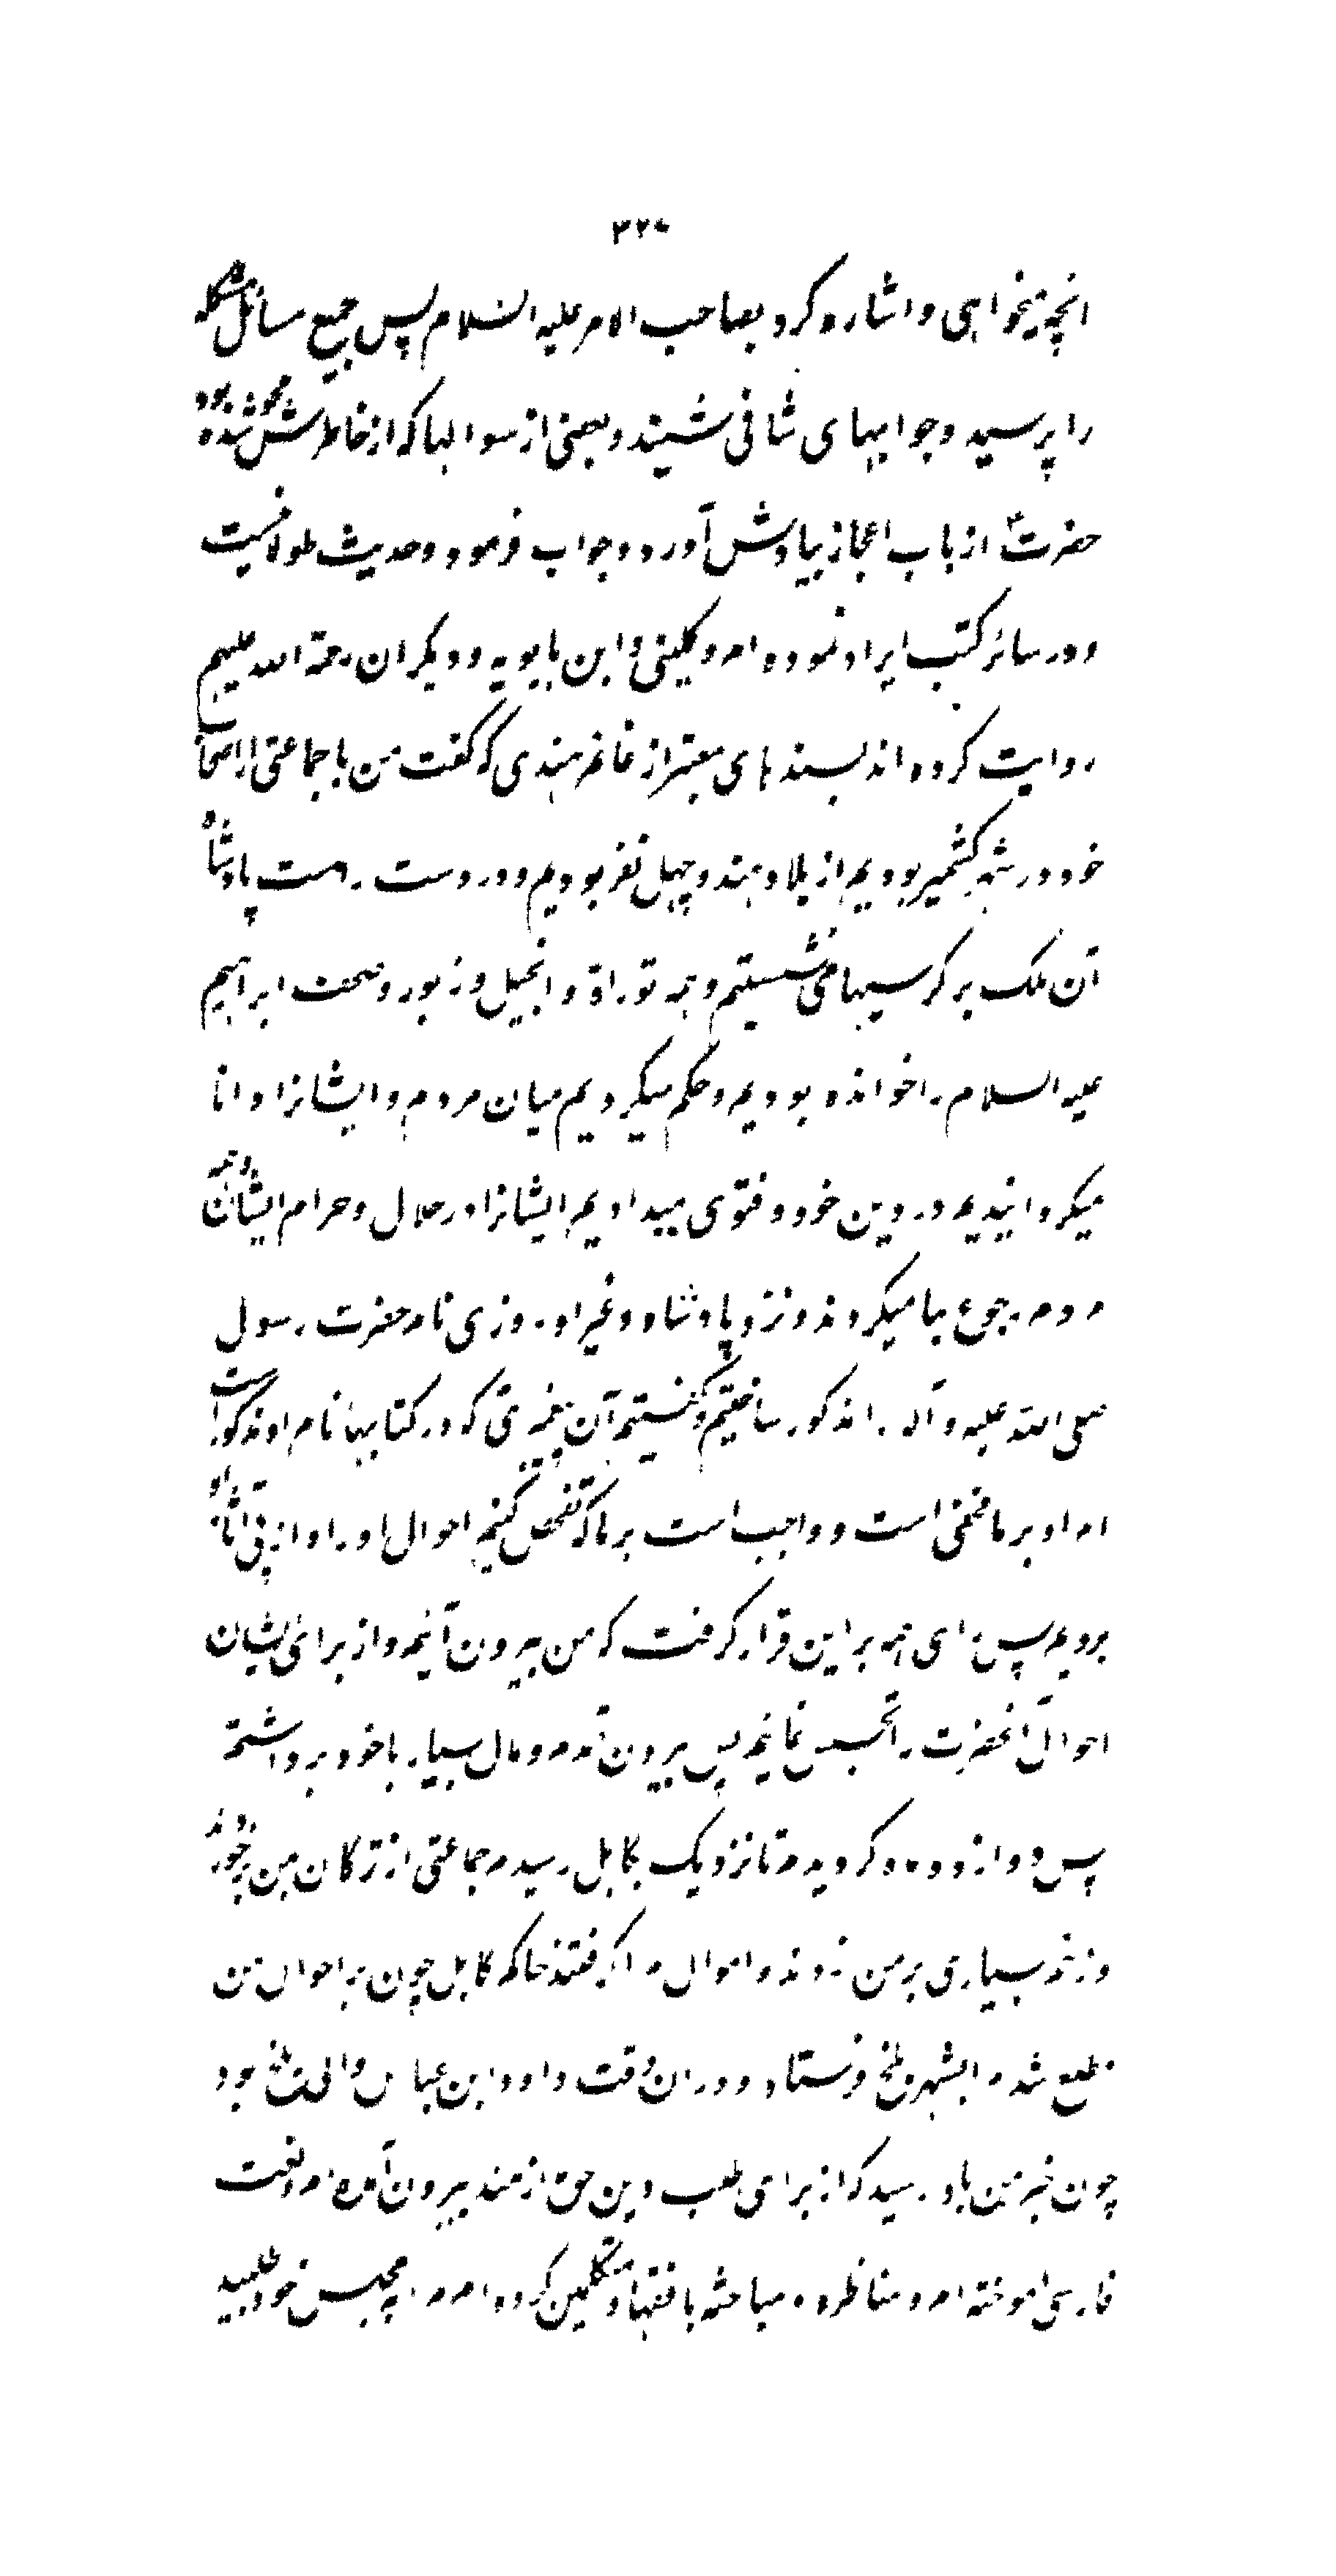 ۳۲۰
انچه میخواهی و اشاره کرد بصاحب الامر علیه السلام پس جمیع مسائل مشکله
را پرسید و جوابهای شافی شنید و بعضی از سوالها که از خاطرش محو شده بود
حضرت از باب اعجاز بیادش آورد و جواب فرمود و حدیث طولانیست
و در سائر کتب ایراد نموده ام و کلینی و ابن بابویه و دیگران رحمة الله علیهم
روایت کرده اند بسندهای معتبر از غانم هندی که گفت من با جماعتی از اصحاب
خود در شهر کشمیر بودیم از بلاد هند و چهل نفر بودیم و در دست راست پادشاه
آن ملک بر کرسیها می نشستیم و همه توراة و انجیل و زبور و صحف ابراهیم
علیه السلام را خوانده بودیم و حکم میکردیم میان مردم و ایشانرا دانا
میکردانیدیم در دین خود و فتوی میدادیم ایشانرا در حلال و حرام ایشان و همه
مردم رجوع بما میکردند و نزد پادشاه و غیر او روزی نام حضرت رسول
صلی الله علیه و آله را مذکور ساختیم و گفتیم آن پیغمبری که در کتابها نام او مذکور است
امر او بر ما مخفی است و واجب است بر ما که تفحص کنیم احوال او را و از پی آثار او
برویم پس رای همه براین قرار گرفت که من بیرون آیم و از برای ایشان
احوال آنحضرت را تجسس نمایم پس بیرون آمدم و مال بسیار با خود برداشتم
پس دوازده ماه گردیدم تا نزدیک بکابل رسیدم جماعتی از ترکان بمن برخوردند
و زخم بسیاری بر من زدند و اموال مرا گرفتند حاکم کابل چون بر احوال من
مطلع شد مرا بشهر بلخ فرستاد و در ان وقت داود ابن عباس والی بلخ بود
چون خبر من باو رسید که از برای طلب دین حق از هند بیرون آمده ام و لغت
فارسی آموخته ام و مناظره و مباحثه با فقها و متکلمین کرده ام مرا بمجلس خود طلبید